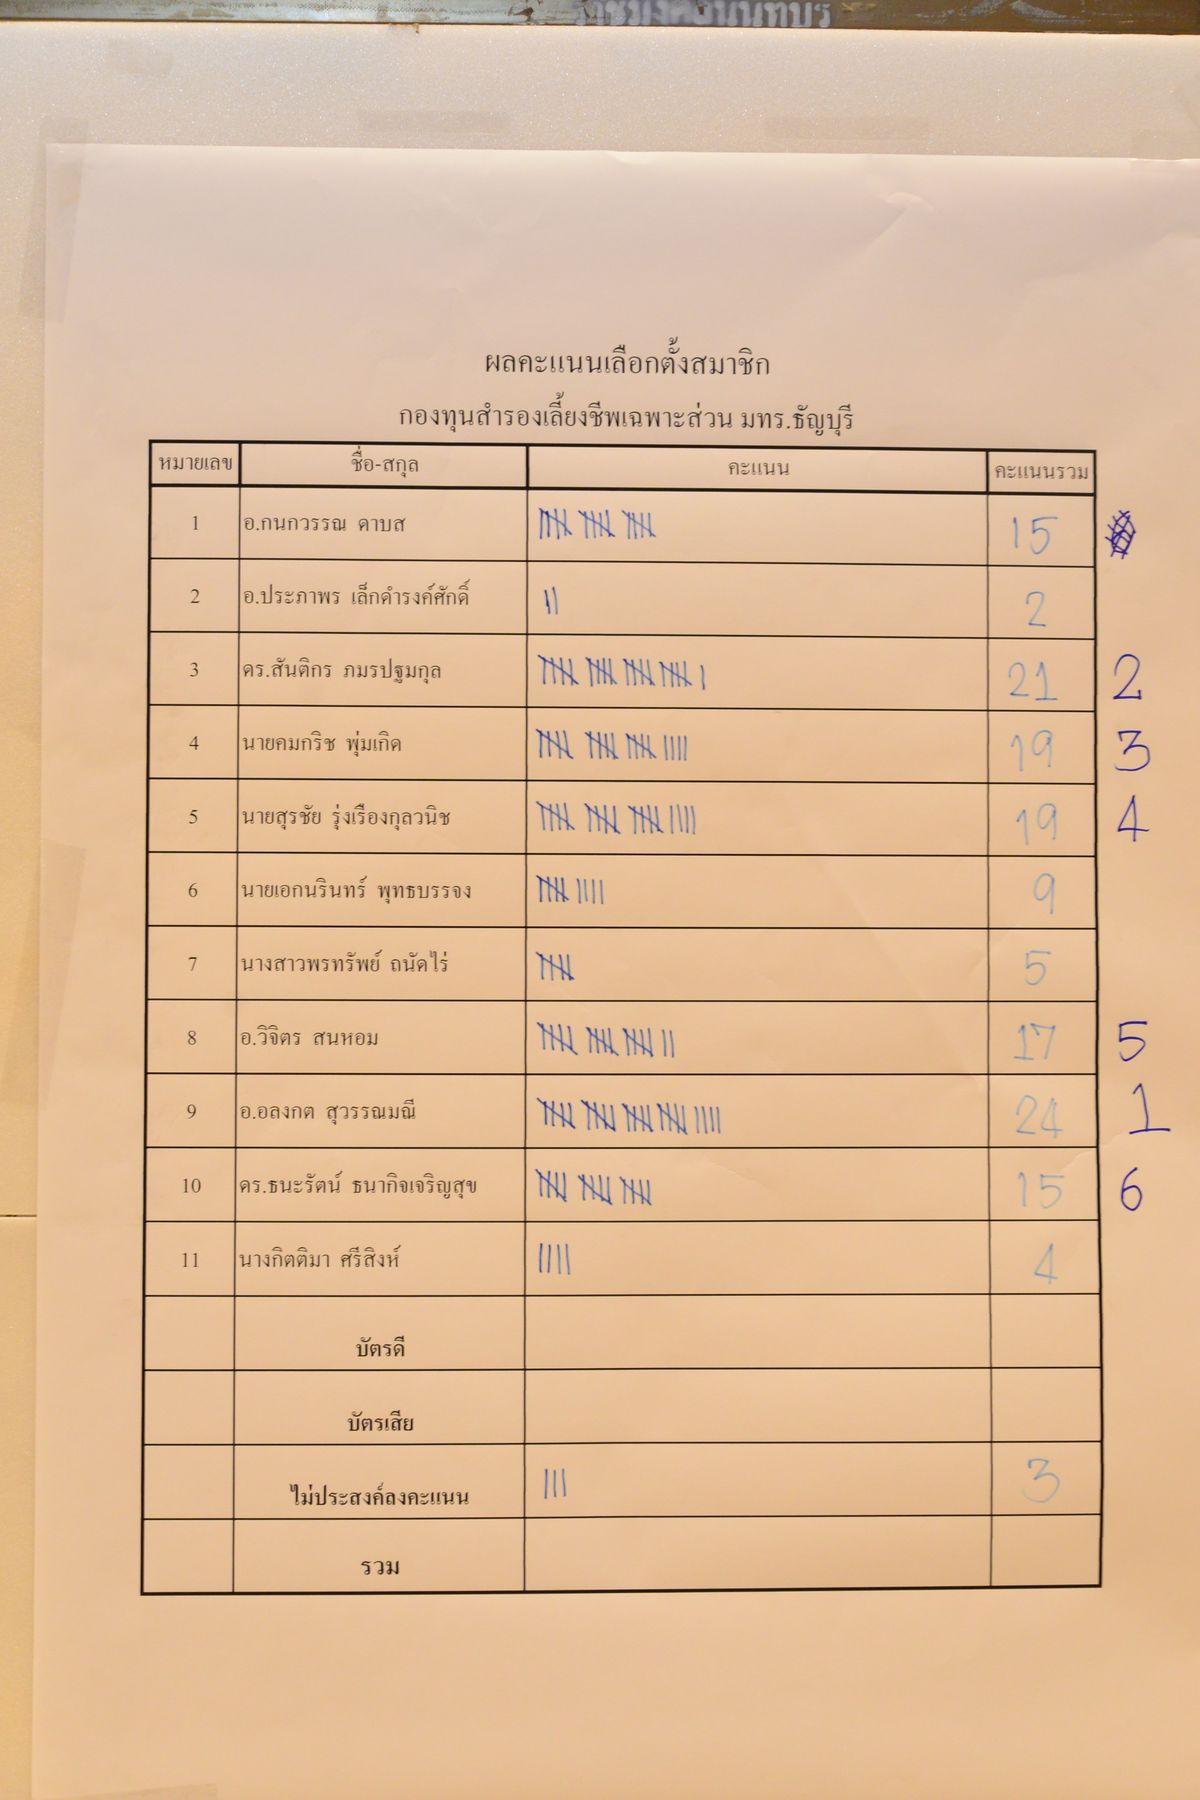 ผลคะแนนเลือกตั้งสมาชิก
กองทุนสำรองเลี้ยงชีพเฉพาะส่วน มทร.ธัญบุรี
หมายเลข ชื่อ-สกุล คะแนน คะแนนรวม
1 อ.กนกวรรณ ดาบส 15
2 อ.ประภาพร เล็กดำรงค์ศักดิ์ 2
3 ดร.สันติกร ภมรปฐมกุล 21 2
4 นายคมกริช พุ่มเกิด 19 3
5 นายสุรชัย รุ่งเรืองกุลวนิช 19 4
6 นายเอกนรินทร์ พุทธบรรจง 9
7 นางสาวพรทรัพย์ ถนัดไร่ 5
8 อ.วิจิตร สนหอม 17 5
9 อ.อลงกต สุวรรณมณี 24 1
10 ดร.ธนะรัตน์ ธนากิจเจริญสุข 15 6
11 นางกิตติมา ศรีสิงห์ 4
บัตรดี
บัตรเสีย
ไม่ประสงค์ลงคะแนน 3
รวม